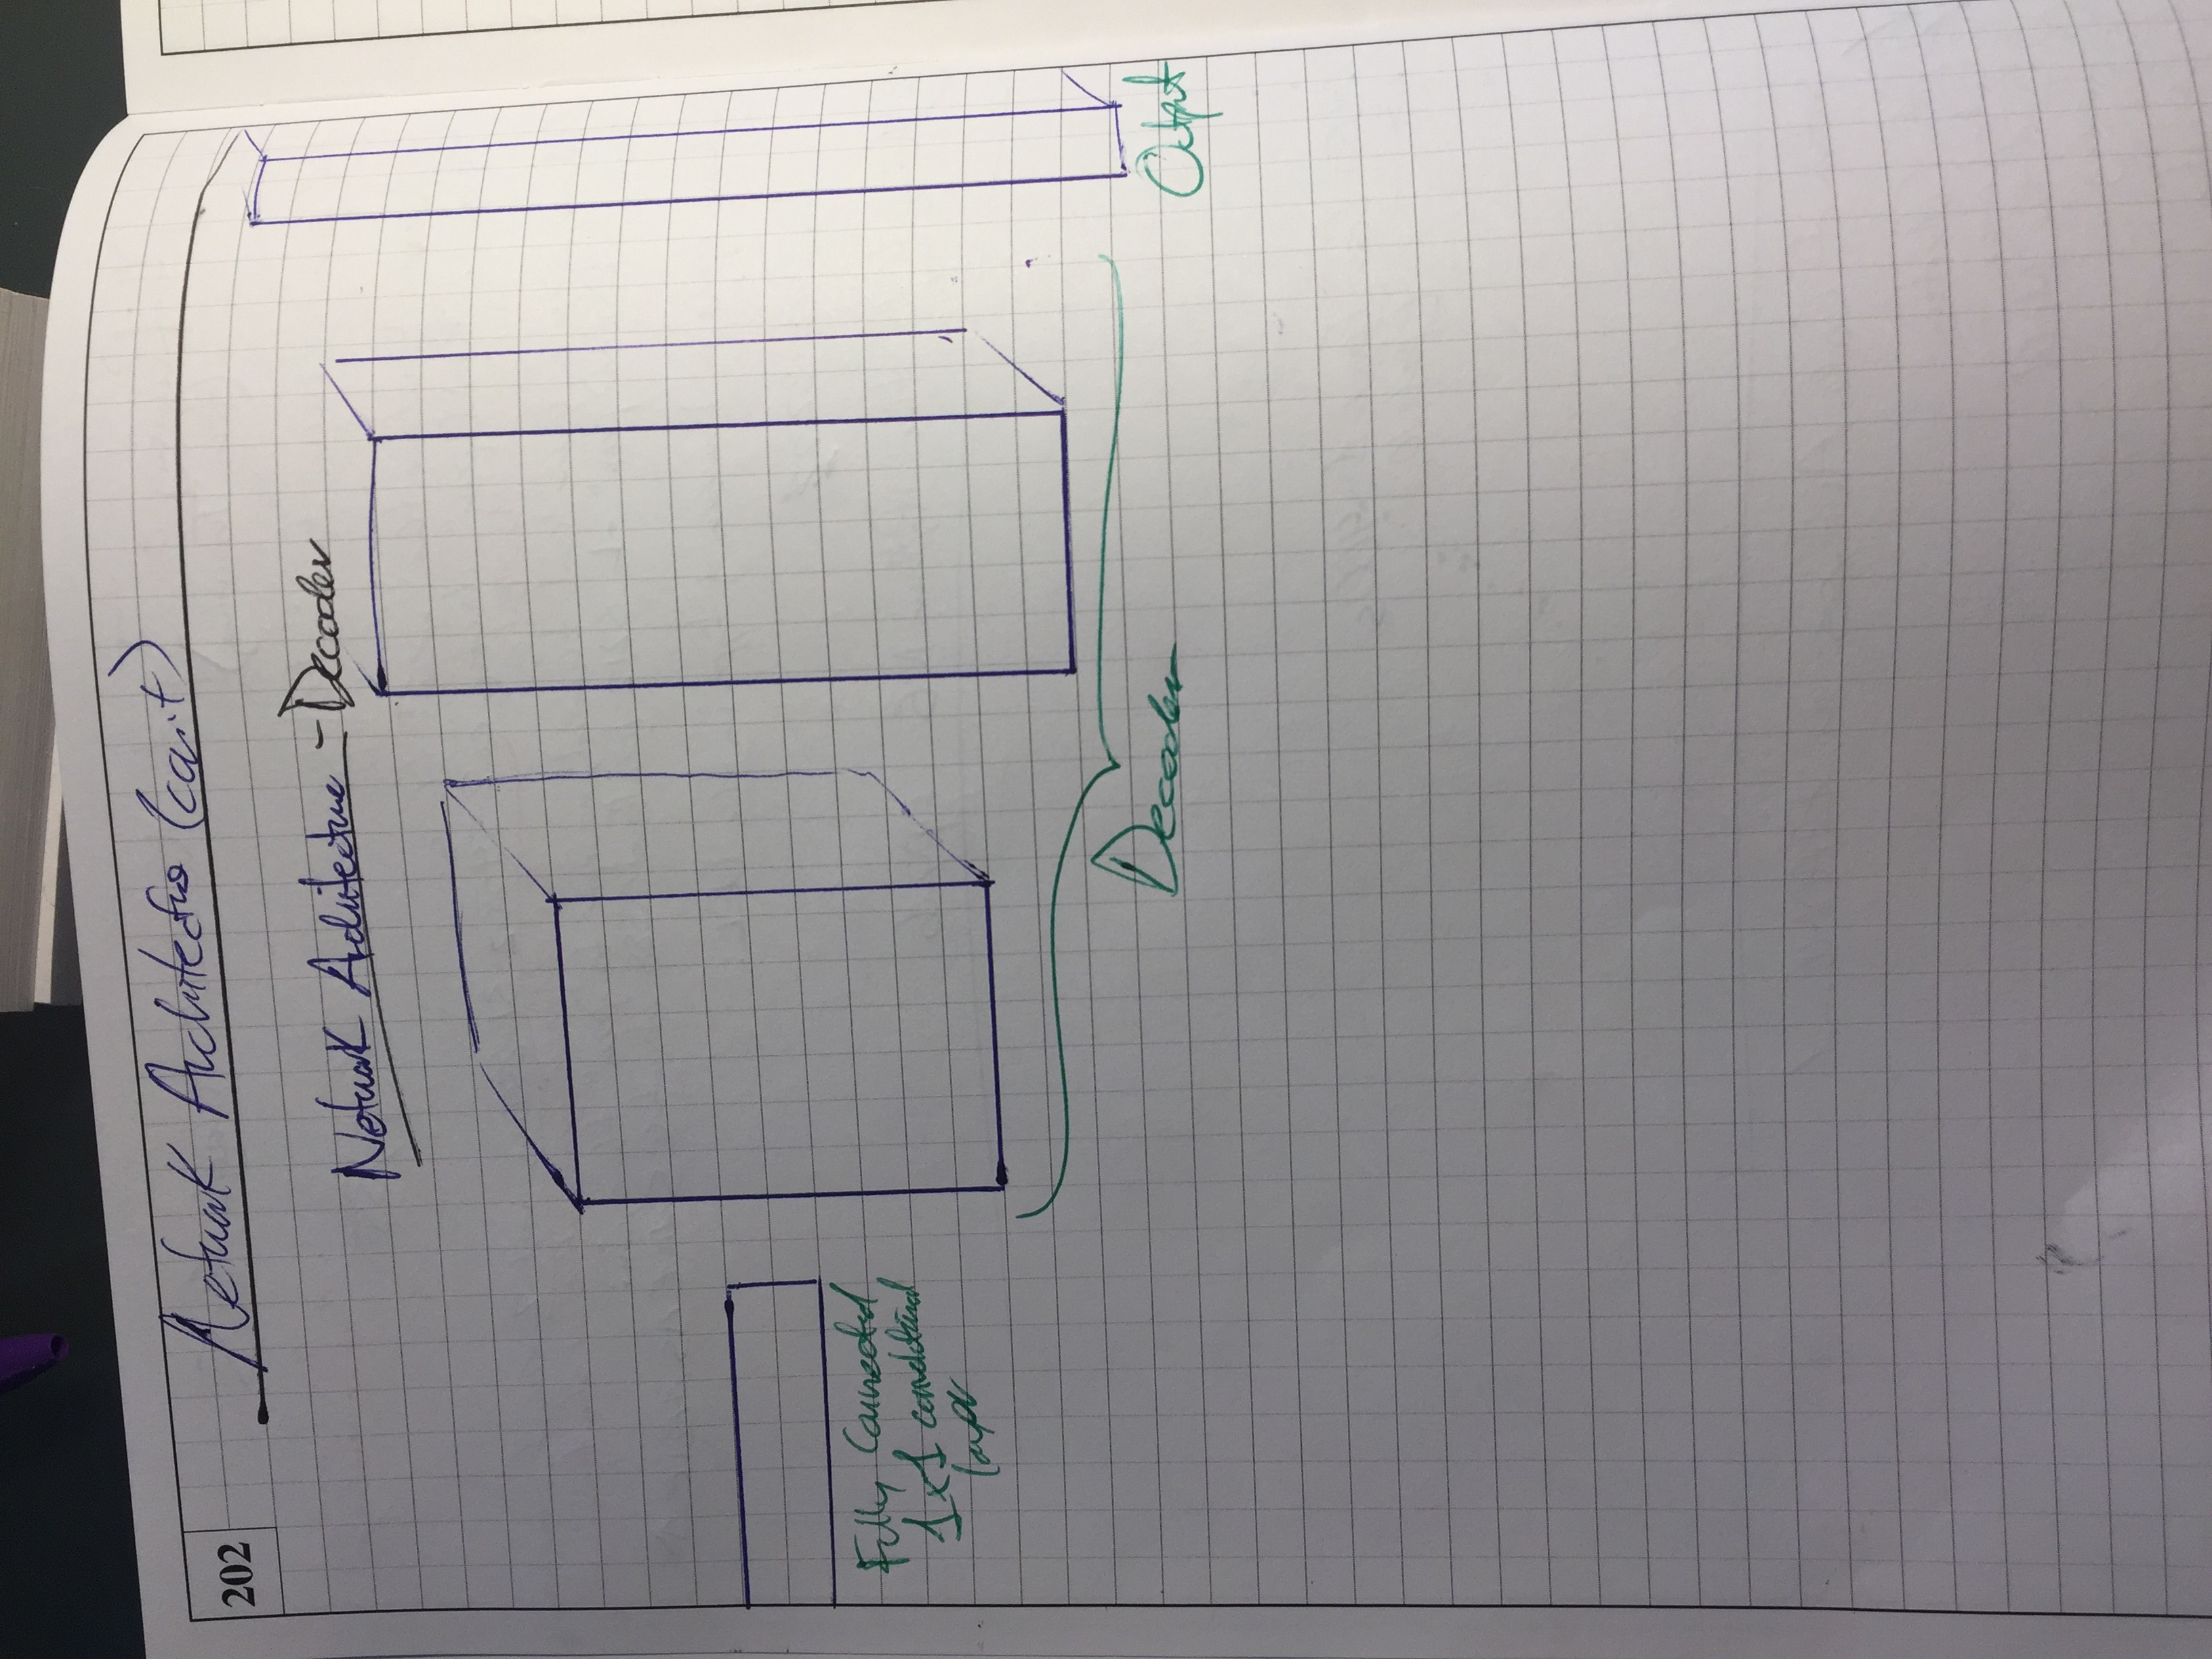 202
Network Architecture (con't)
Network Architecture - Decoder
Fully Connected
1x1 convolutional
layer
Decoder
Output